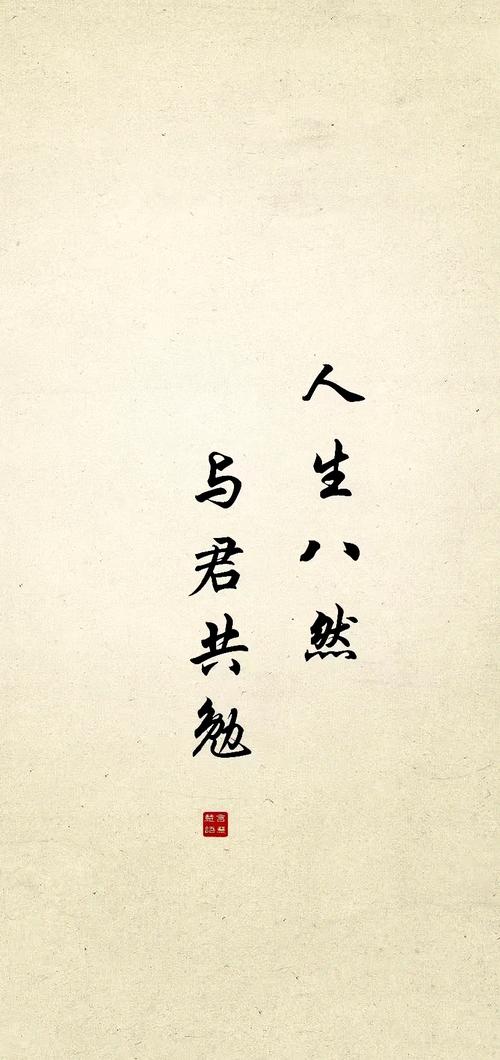 人生八然
与君共勉